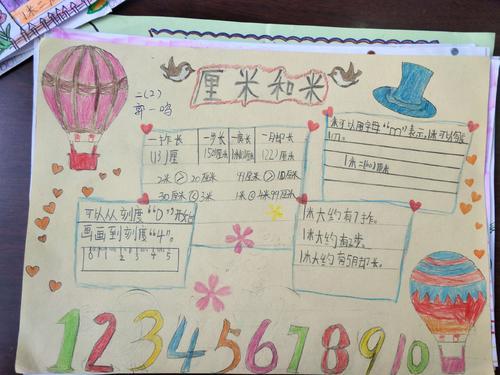 1米=
厘米和米
二(2)
郭一鸣
一拃长 一步长 一庹长 一脚长
(13)厘 150厘米 (22)厘米
2米 > 20厘米
30厘米 < 3米 1米 99厘米
1米可以用字母“m”表示,1米可以写成
1m。
1米=100厘米
可以从刻度“0”开始
画画到刻度“4”。
0 1 2 3 4 5
1米大约有7拃。
1米大约有2步。
1米大约有5月却长。
1 2 3 4 5 6 7 8 9 10